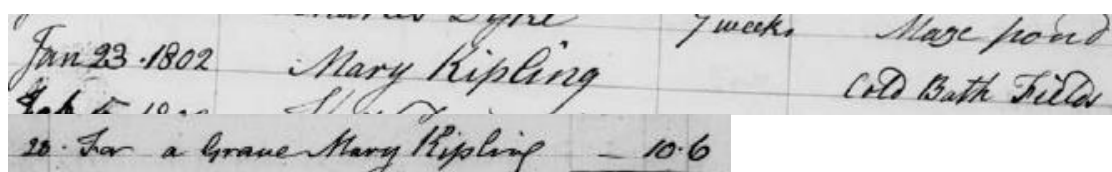 Charles Dyke 7 weeks Maze pond
Jan 23 1802 Mary Kipling Cold Bath Fields
Feb 5
20. For a Grave Mary Kipling — 10.6